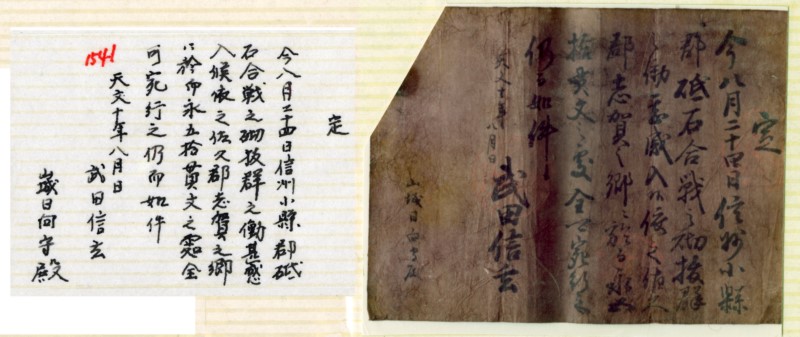 定
今八月二十四日信州小縣
郡砥石合戦之砌抜群
之働甚感入候依之佐久
郡志賀之郷ニ於而永五
拾貫文之處全可宛行之
仍而如件
天文十年八月日
武田信玄
山城日向守殿
定
今八月二十四日信洲小縣郡砥
石合戦之砌抜群之働甚感
入候依之佐久郡志賀之郷
ニ於而永五拾貫文之處全
可宛行之仍而如件
1541
天文十年八月日
武田信玄
山城日向守殿